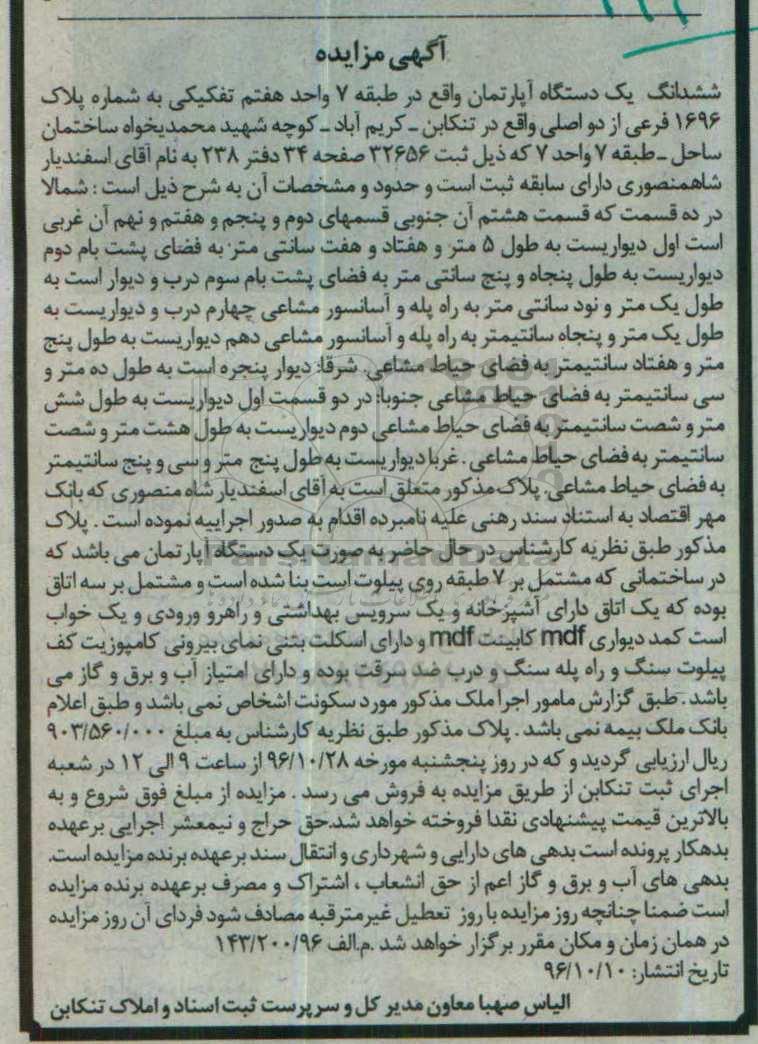 آگهی مزایده
ششدانگ یک دستگاه آپارتمان واقع در طبقه ۷ واحد هفتم تفکیکی به شماره پلاک
۱۶۹۶ فرعی از دو اصلی واقع در تنکابن ـ کریم آباد ـ کوچه شهید محمدیخواه ساختمان
ساحل ـ طبقه ۷ واحد ۷ که ذیل ثبت ۳۲۶۵۶ صفحه ۳۴ دفتر ۲۳۸ به نام آقای اسفندیار
شاهمنصوری دارای سابقه ثبت است و حدود و مشخصات آن به شرح ذیل است : شمالا
در ده قسمت که قسمت هشتم آن جنوبی قسمهای دوم و پنجم و هفتم و نهم آن غربی
است اول دیواریست به طول ۵ متر و هفتاد و هفت سانتی متر به فضای پشت بام دوم
دیواریست به طول پنجاه و پنج سانتی متر به فضای پشت بام سوم درب و دیوار است به
طول یک متر و نود سانتی متر به راه پله و آسانسور مشاعی چهارم درب و دیواریست به
طول یک متر و پنجاه سانتیمتر به راه پله و آسانسور مشاعی دهم دیواریست به طول پنج
متر و هفتاد سانتیمتر به فضای حیاط مشاعی. شرقا: دیوار پنجره است به طول ده متر و
سی سانتیمتر به فضای حیاط مشاعی جنوبا: در دو قسمت اول دیواریست به طول شش
متر و شصت سانتیمتر به فضای حیاط مشاعی دوم دیواریست به طول هشت متر و شصت
سانتیمتر به فضای حیاط مشاعی . غربا دیواریست به طول پنج متر و سی و پنج سانتیمتر
به فضای حیاط مشاعی. پلاک مذکور متعلق است به آقای اسفندیار شاه منصوری که بانک
مهر اقتصاد به استناد سند رهنی علیه نامبرده اقدام به صدور اجراییه نموده است . پلاک
مذکور طبق نظریه کارشناس در حال حاضر به صورت یک دستگاه آپارتمان می باشد که
در ساختمانی که مشتمل بر ۷ طبقه روی پیلوت است بنا شده است و مشتمل بر سه اتاق
بوده که یک اتاق دارای آشپزخانه و یک سرویس بهداشتی و راهرو ورودی و یک خواب
است کمد دیواری mdf کابینت mdf و دارای اسکلت بتنی نمای بیرونی کامپوزیت کف
پیلوت سنگ و راه پله سنگ و درب ضد سرقت بوده و دارای امتیاز آب و برق و گاز می
باشد . طبق گزارش مامور اجرا ملک مذکور مورد سکونت اشخاص نمی باشد و طبق اعلام
بانک ملک بیمه نمی باشد . پلاک مذکور طبق نظریه کارشناس به مبلغ ۹۰۳/۵۶۰/۰۰۰
ریال ارزیابی گردید و که در روز پنجشنبه مورخه ۹۶/۱۰/۲۸ از ساعت ۹ الی ۱۲ در شعبه
اجرای ثبت تنکابن از طریق مزایده به فروش می رسد . مزایده از مبلغ فوق شروع و به
بالاترین قیمت پیشنهادی نقدا فروخته خواهد شد.حق حراج و نیمعشر اجرایی برعهده
بدهکار پرونده است بدهی های دارایی و شهرداری و انتقال سند بر عهده برنده مزایده است.
بدهی های آب و برق و گاز اعم از حق انشعاب ، اشتراک و مصرف برعهده برنده مزایده
است ضمنا چنانچه روز مزایده با روز تعطیل غیرمترقبه مصادف شود فردای آن روز مزایده
در همان زمان و مکان مقرر برگزار خواهد شد .م.الف ۱۴۳/۲۰۰/۹۶
تاریخ انتشار: ۹۶/۱۰/۱۰
الیاس صهبا معاون مدیر کل و سرپرست ثبت اسناد و املاک تنکابن